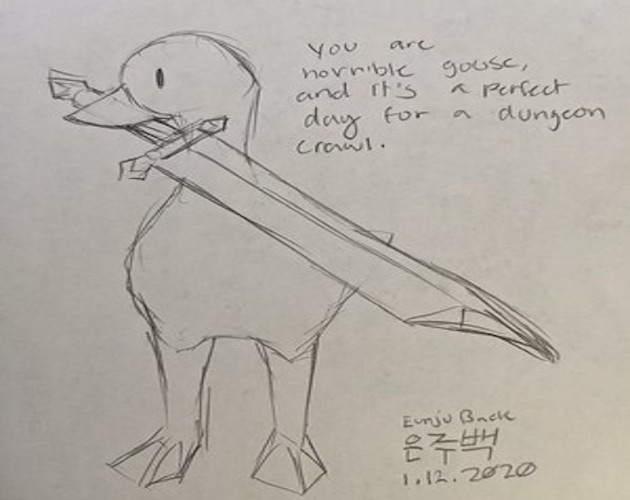 You are
horrible goose,
and it's a perfect
day for a dungeon
crawl.
Eunju Baek
은주백
1.12.2020